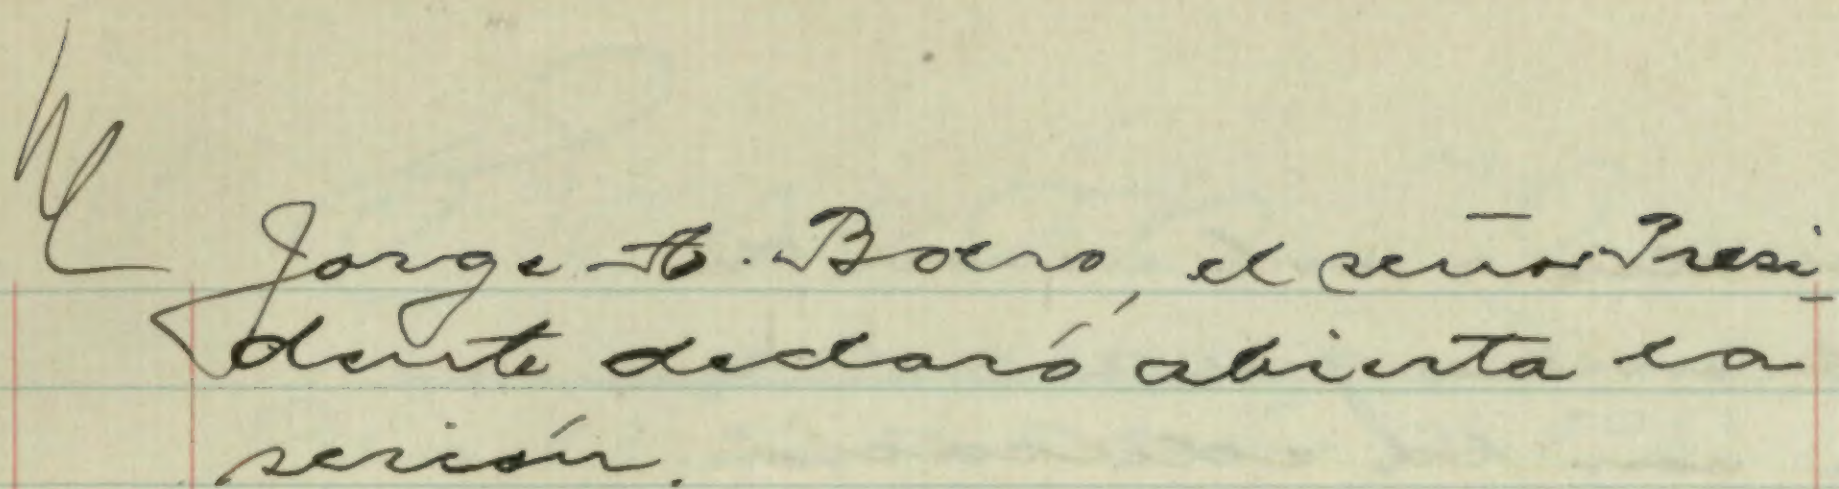 Jorge A. Boero, el señor Presi-
dente declaró abierta la
sesión.